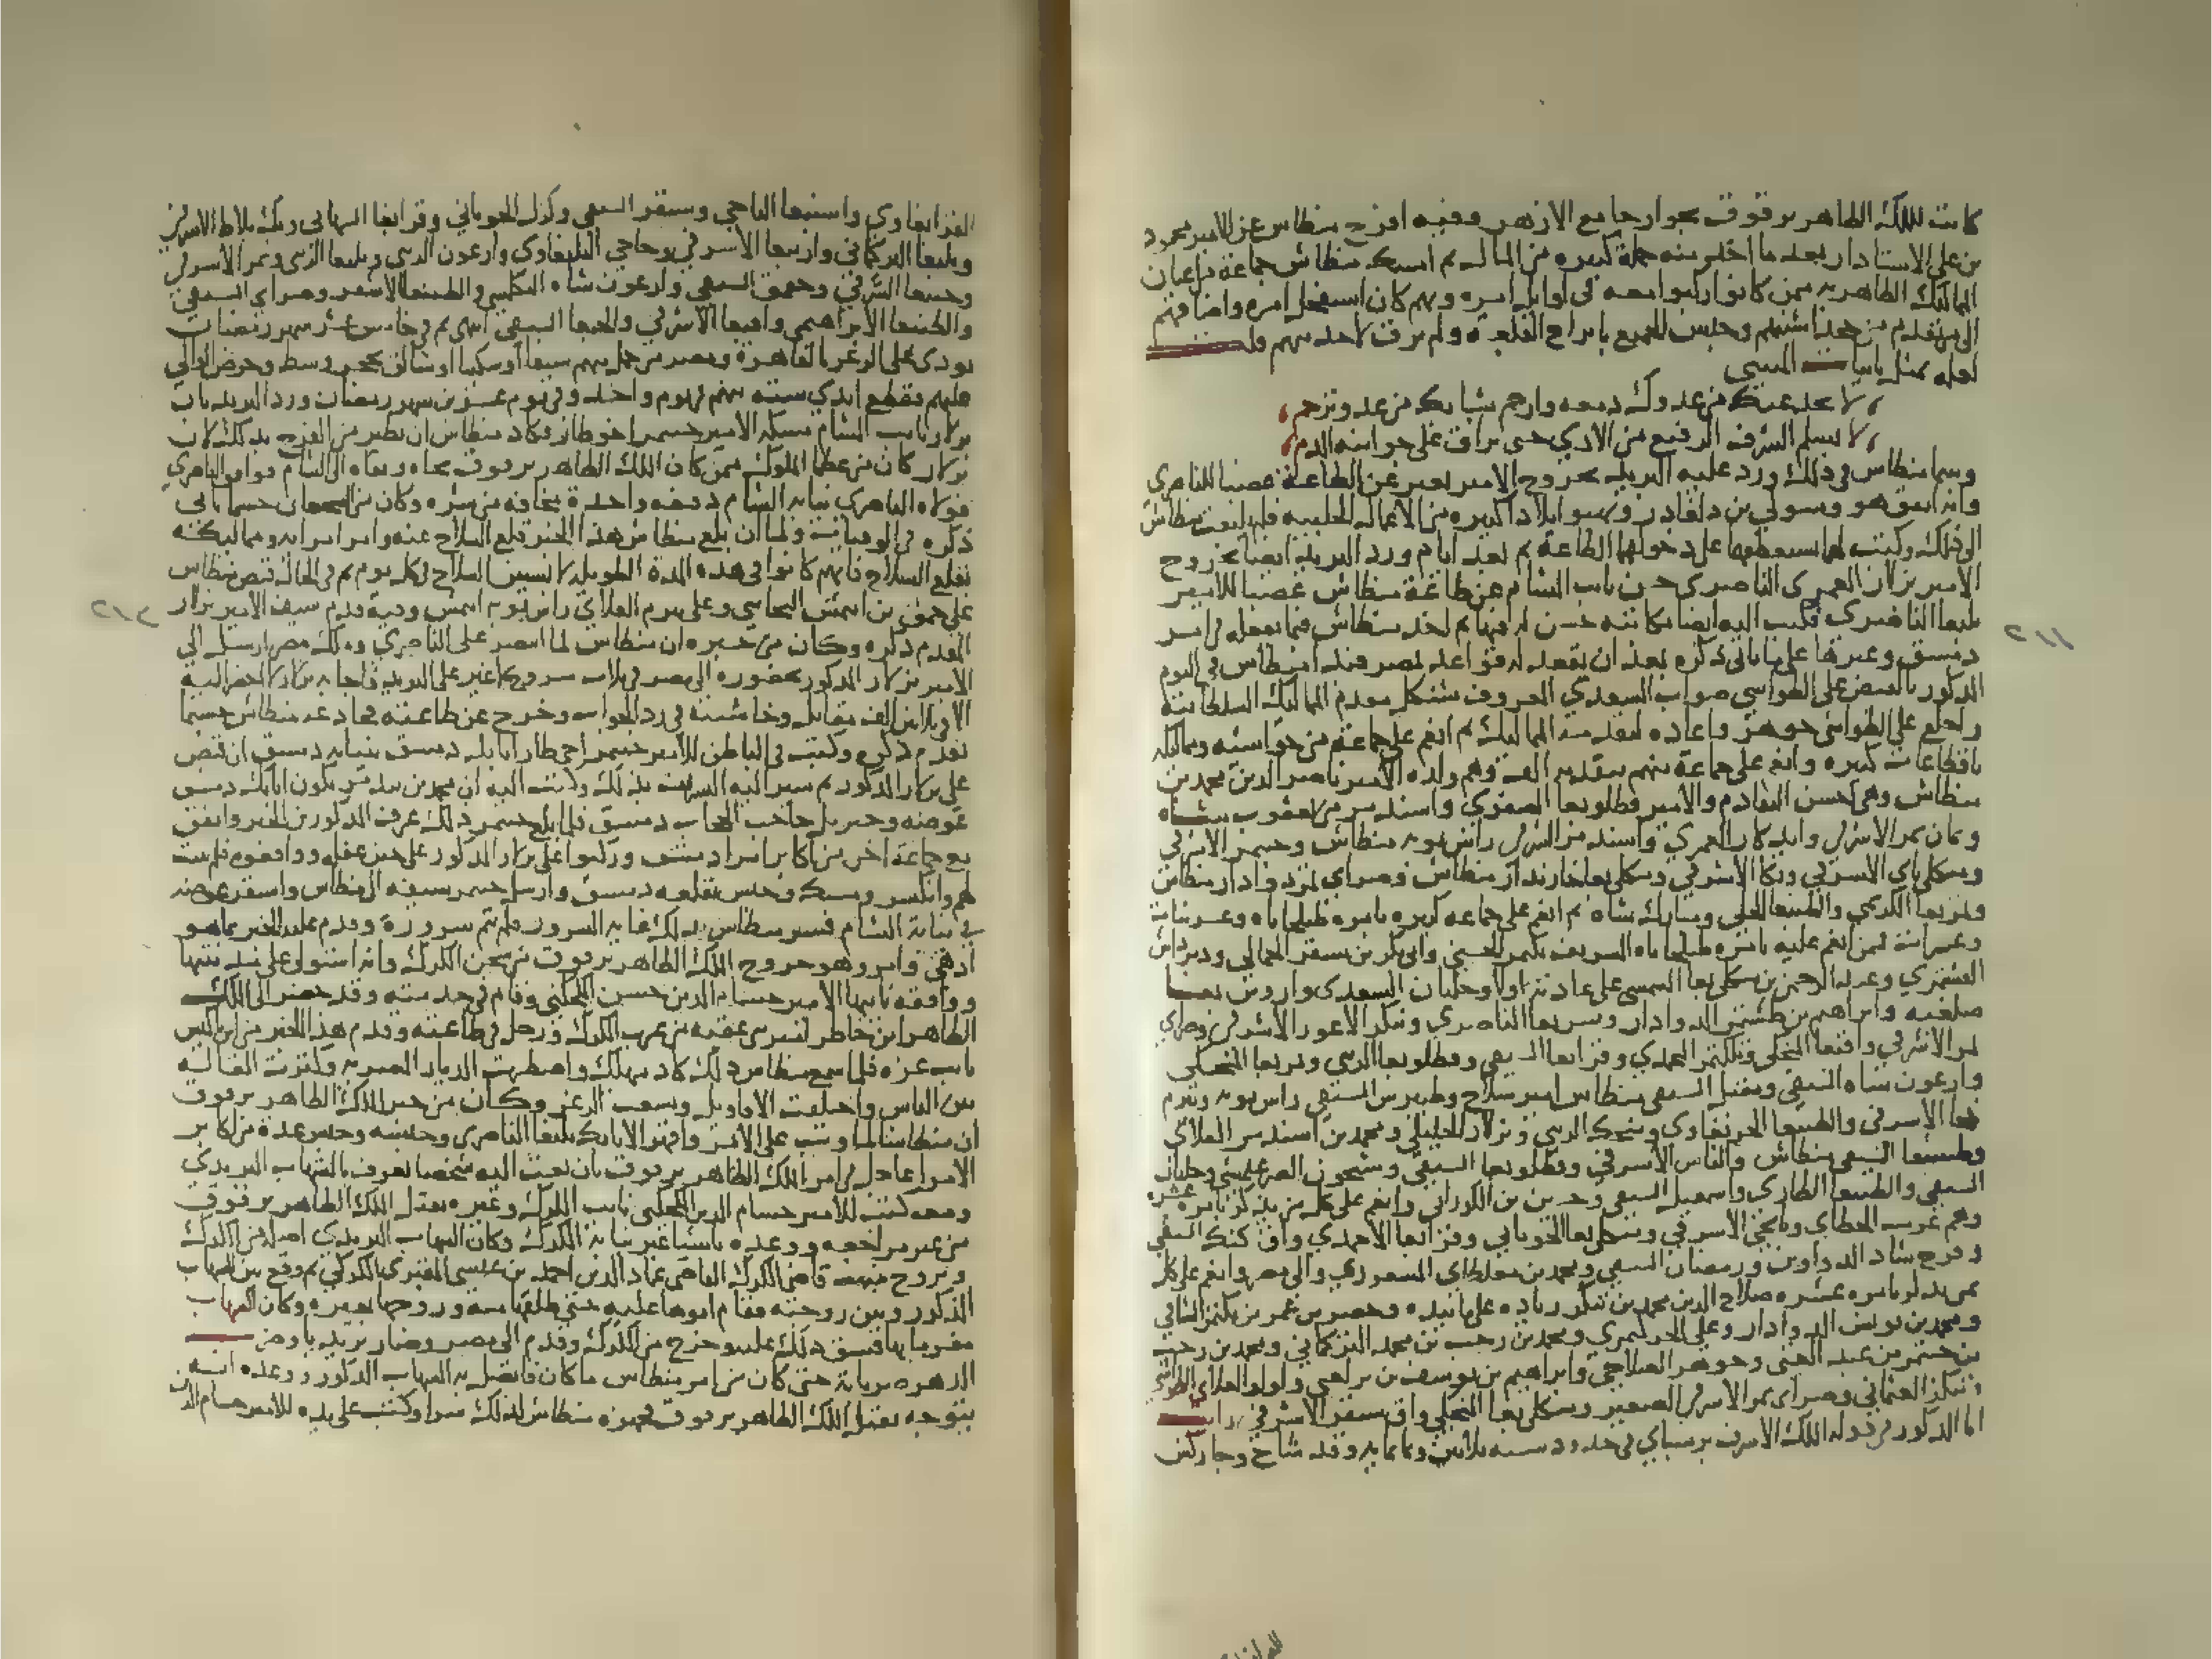 كانت للملك الظاهر برقوق بجوار جامع الازهر وفيه افرج منطاش عن الامير محمود
بن علي الاستادار بعد ما اخذ منه جملة كبيره من المال ثم امسك منطاش جماعة من اعيان
المماليك الظاهريه ممن كانوا ركبوا معه في اوايل امره وبهم كان استفحل امره واضافهم
الى من تقدم من خجداشيتهم وحبس الجميع بابراج القلعه ولم يرق لاحد منهم قلت
لعله تمثل بابيات المتنبي
لا يخدعنك من عدوك دمعه وارحم شبابك من عدو ترحم
لا يسلم الشرف الرفيع من الاذى حتى يراق على جوانبه الدم
وبينما منطاش في ذلك ورد عليه البريد بخروج الامير نعير عن الطاعة غضبا للناصري
وانه اتفق هو وسولي بن دلغادر ونهبوا بلادا كبيره من الاعمال الحلبيه فلم يلتفت منطاش
الى ذلك وكتب لهما يستعطفهما على دخولهما الطاعة ثم بعد ايام ورد البريد ايضا بخروج
الامير بزلار العمري الناصري حسن نايب الشام عن طاعة منطاش غضبا للامير
يلبغا الناصري فكتب اليه ايضا مكاتبه خشن له فيها ثم اخذ منطاش فيما يفعله في امر
دمشق وغيرها على ما ياتي ذكره بعد ان يقعد له قواعد بمصر فبدا منطاش في اليوم
المذكور بالقبض على الطواشي صواب السعدي المعروف بشنكل مقدم المماليك السلطانية
واخلع على الطواشي جوهر واعاده لتقدمة المماليك ثم انعم على جماعة من حواشيه ومماليكه
باقطاعات كثيره وانعم على جماعة منهم بتقدمه الف وهم ولده الامير ناصر الدين محمد بن
منطاش وهي احسن التقادم والامير قطلوبغا الصفوي واسندمر بن يعقوب شاه
وتمان تمر الاشرفي وايدكار العمري واسندمر الشرفي راس نوبه منطاش وجنتمر الاشرفي
ومنكلي باي الاشرفي وتكا الاشرفي ومنكلي بغا خازندار منطاش وصراي تمر دوادار منطاش
وتمربغا الكريمي والطنبغا الحلبي ومبارك شاه ثم انعم على جماعه كبيره بامره طبلخاناه وعشرينات
وعشرات فممن انعم عليه بامره طبلخاناه الشريف بكتمر الحسني وابي بكر بن سنقر الجمالي ودمرداش
القشتمري وعبد الرحمن بن منكلي بغا الشمسي على عادته اولا وجلبان السعدي واروس بغا
صلغيه وابراهيم بن طشتمر الدوادار وسربغا الناصري وتنكز الاعور الاشرفي وصراي
تمر الاشرفي واقبغا المنجكي وتلكتمر المحمدي وقرابغا السيفي وقطلوبغا الزيني وتمربغا المنجكي
وارغون شاه السيفي ومقبل السيفي منطاش امير سلاح وطيبرس السيفي راس نوبه وبيرم
خجا الاشرفي والطنبغا الجربغاوي ومنجك الزيني وبزلار الخليلي ومحمد بن اسندمر العلاي
وطشبغا السيفي منطاش والياس الاشرفي وقطلوبغا السيفي وشيخون الصرغتمشي وجلبان
السيفي والطنبغا الطازي واسمعيل السيفي وحسين بن الكوراني وانعم على كل من يذكر بامره عشره
وهم غريب الخطاي وبايجي الاشرفي ومنكلي بغا الجوباني وقرابغا الاحمدي واق كبك السيفي
وفرج شاد الدواوين ورمضان السيفي ومحمد بن مغلطاي المسعودي والي مصر وانعم على كل
ممن يذكر بامره عشره صلاح الدين محمد بن تنكز زياده على ما بيده وخضر بن عمر بن بكتمر الساقي
ومحمد بن يونس الدوادار وعلي الجركتمري ومحمد بن رجب بن محمد التركماني ومحمد بن رجب
بن جنتمر بن عبد الغني وجوهر الصلاحي وابراهيم بن يوسف بن برلغي ولولو العلاي الطواشي
وتنكز العثماني وصراي تمر الاشرفي الصغير ومنكلي بغا المنجكي واق سنقر الاشرفي رايت
انا المذكور في دوله الملك الاشرف برسباي في حدود سنه ثلاثين وثمانمايه وقد شاخ وجاركس
القرابغاوي واسنبغا التاجي وسنقر السيفي وكزل الجوباني وقرابغا الشهابي وبك بلاط الاشرفي
ويلبغا التركماني واربغا الاشرفي وحاجي اليلبغاوي وارغون الزيني ويلبغا الزيني وتمر الاشرفي
وجنبغا الشرفي وجقمق السيفي وارغون شاه البكلمشي والطنبغا الاشقر وصراي السيفي
والطنبغا الابراهيمي واقبغا الاشرفي والجبغا السيفي انتهى ثم في خامس عشر شهر رمضان
نودي على الزعر بالقاهرة ومصر من حمل منهم سيفا او سكينا او شالق بحجر وسط وحرض الوالي
عليهم فقطع ايدي سته منهم في يوم واحد وفي يوم عشرين شهر رمضان ورد البريد بان
بزلار نايب الشام مسكه الامير جنتمر اخو طاز فكاد منطاش ان يطير من الفرح بذلك لان
بزلار كان من عظما الملوك ممن كان الملك الظاهر برقوق يخافه ونفاه الى الشام فوافق الناصري
فولاه الناصري نيابه الشام دفعه واحدة مخافه من شره وكان من الشجعان حسبما ياتي
ذكره في الوفيات ولما ان بلغ منطاش هذا الخبر قلع السلاح عنه وامر امرايه ومماليكه
بقلع السلاح فانهم كانوا في هذه المدة الطويله لابسين السلاح في كل يوم ثم في الحال قبض منطاش
على جمق بن ايتمش البجاسي وعلى بيرم العلاي راس نوبه ايتمش وفيه قدم سيف الامير بزلار
المقدم ذكره وكان من خبره ان منطاش لما انتصر على الناصري وملك مصر ارسل الى
الامير بزلار المذكور بحضوره الى مصر في ثلاث سروج لا غير على البريد فاجابه بزلار لا احضر اليه
الا في ثلاثين الف مقاتل وخاشنه في رد الجواب وخرج عن طاعته فخادعه منطاش حسبما
تقدم ذكره وكتب في الباطن للامير جنتمر اخي طاز اتابك دمشق بنيابه دمشق ان قبض
على بزلار المذكور ثم سير اليه التشريف بذلك وكتب اليه ان محمد بن بيدمر يكون اتابك دمشق
عوضه وجبريل حاجب الحجاب بدمشق فلما بلغ جنتمر ذلك عرف المذكورين الخبر واتفق
مع جماعة اخر من اكابر امرا دمشق وركبوا على بزلار المذكور على حين غفله وواقعوه فلم يثبت
لهم وانكسر ومسك وحبس بقلعه دمشق وارسل جنتمر سيفه الى منطاش واستقر عوضه
في نيابة الشام فسر منطاش بذلك غايه السرور فلم يتم سروره وقدم عليه الخبر بما هو
ادهى وامر وهو خروج الملك الظاهر برقوق من سجن الكرك وانه استولى على مدينتها
ووافقه نايبها الامير حسام الدين حسن الكجكني وقام في خدمته وقد حضر الى الملك
الظاهر ابن خاطر امير بني عقبه من عرب الكرك ودخل في طاعته وقدم هذا الخبر من ابن باكيش
نايب غزه فلما سمع منطاش ذلك كاد يهلك واضطربت الديار المصريه وكثرت القاله
بين الناس واختلفت الاقاويل وتشغب الزعر وكان من خبر الملك الظاهر برقوق
ان منطاشا لما وثب على الامر واقهر الاتابك يلبغا الناصري وحبسه وحبس عدة من اكابر
الامرا عاجل في امر الملك الظاهر برقوق بان بعث اليه شخصا يعرف بالشهاب البريدي
ومعه كتب للامير حسام الدين الكجكني نايب الكرك وغيره بقتل الملك الظاهر برقوق
من غير مراجعه ووعده باشيا غير نيابة الكرك وكان الشهاب البريدي اصله من الكرك
وتزوج ببنت قاضي الكرك القاضي عماد الدين احمد بن عيسى المقيري الكركي ثم وقع بين الشهاب
المذكور وبين زوجته فقام ابوها عليه حتى طلقها منه وزوجها بغيره وكان الشهاب
مغرما بها فشق ذلك عليه وخرج من الكرك وقدم الى مصر وصار بريديا وضرب
الدهر ضرباته حتى كان من امر منطاش ما كان فاتصل به الشهاب المذكور ووعده انه
يتوجه بقتل الملك الظاهر برقوق فجهزه منطاش لذلك سرا وكتب على يده للامير حسام الدين